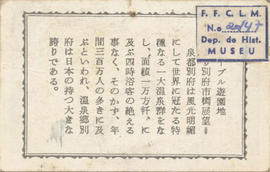 F. F. C. L. M.
No
Dep. de Hist.
MUSEU
ーブル遊園地
り別府市街展望
泉都別府は風光明媚
にして世界に冠たる特
種なる一大温泉群をな
し、面積一万方粁、に
及ぶ四時浴客の絶える
事なく、そのかず、年
間三百万人の多きに及
ぶといわれ、温泉郷別
府は日本の持つ大きな
誇りである。